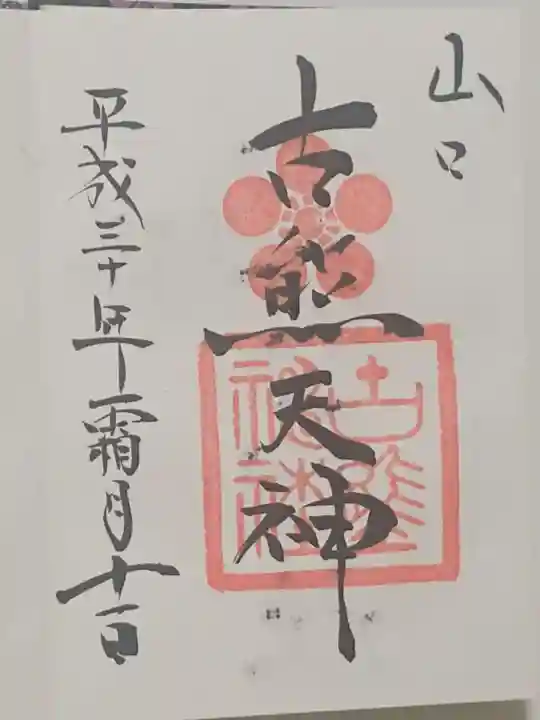 山口
古熊天神
古熊神社
平成三十年霜月十一日